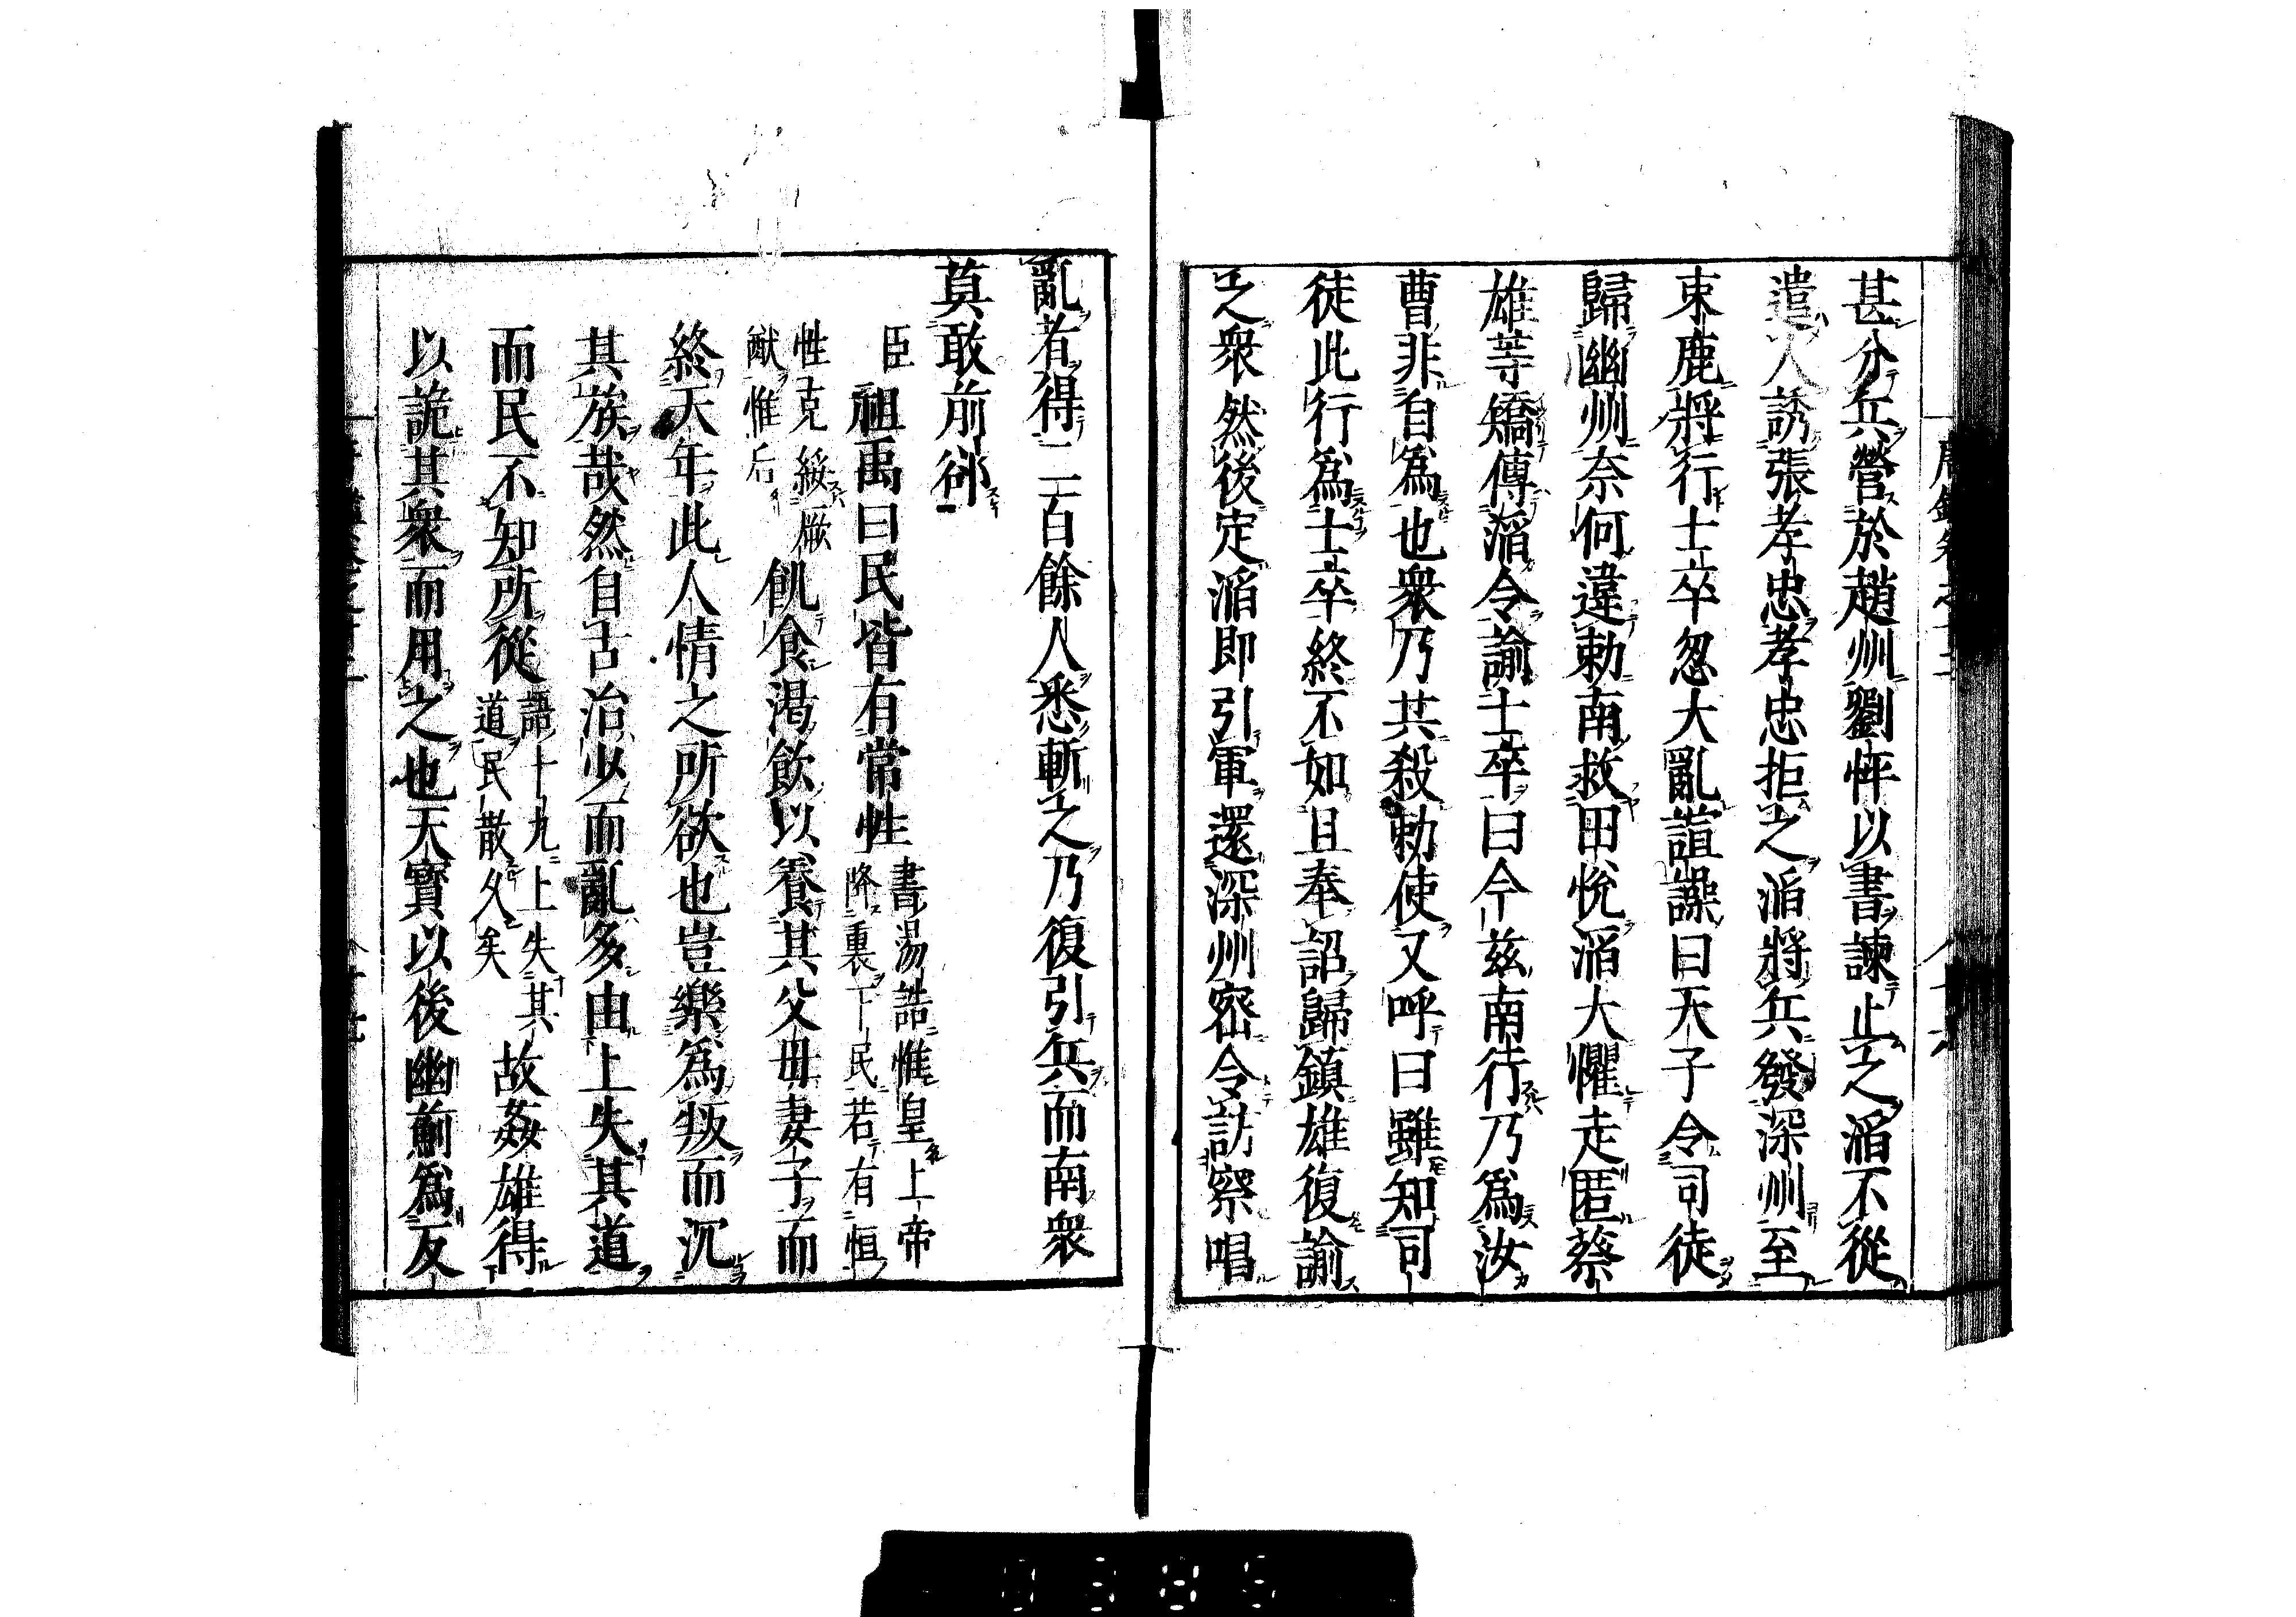 甚分兵營於趙州劉怦以書諫止之滔不從
遣人誘張孝忠孝忠拒之滔將兵發深州至
束鹿將行士卒忽大亂諠譟曰天子令司徒
歸幽州奈何違勅南救田悅滔大懼走匿蔡
雄等矯傳滔令諭士卒曰今兹南行乃爲汝
曹非自爲也衆乃共殺勅使又呼曰雖知司
徒此行爲士卒終不如且奉詔歸鎮雄復諭
之衆然後定滔即引軍還深州密令訪察唱
亂者得二百餘人悉斬之乃復引兵而南衆
莫敢前却
臣祖禹曰民皆有常性
書湯誥惟皇上帝
降衷下民若有恒
性克綏厥
猷惟后
飢食渴飲以養其父母妻子而
終天年此人情之所欲也豈樂爲叛而沉
其族哉然自古治少而亂多由上失其道
而民不知所從
語十九上失其
道民散久矣
故姦雄得
以詭其衆而用之也天寶以後幽薊爲反